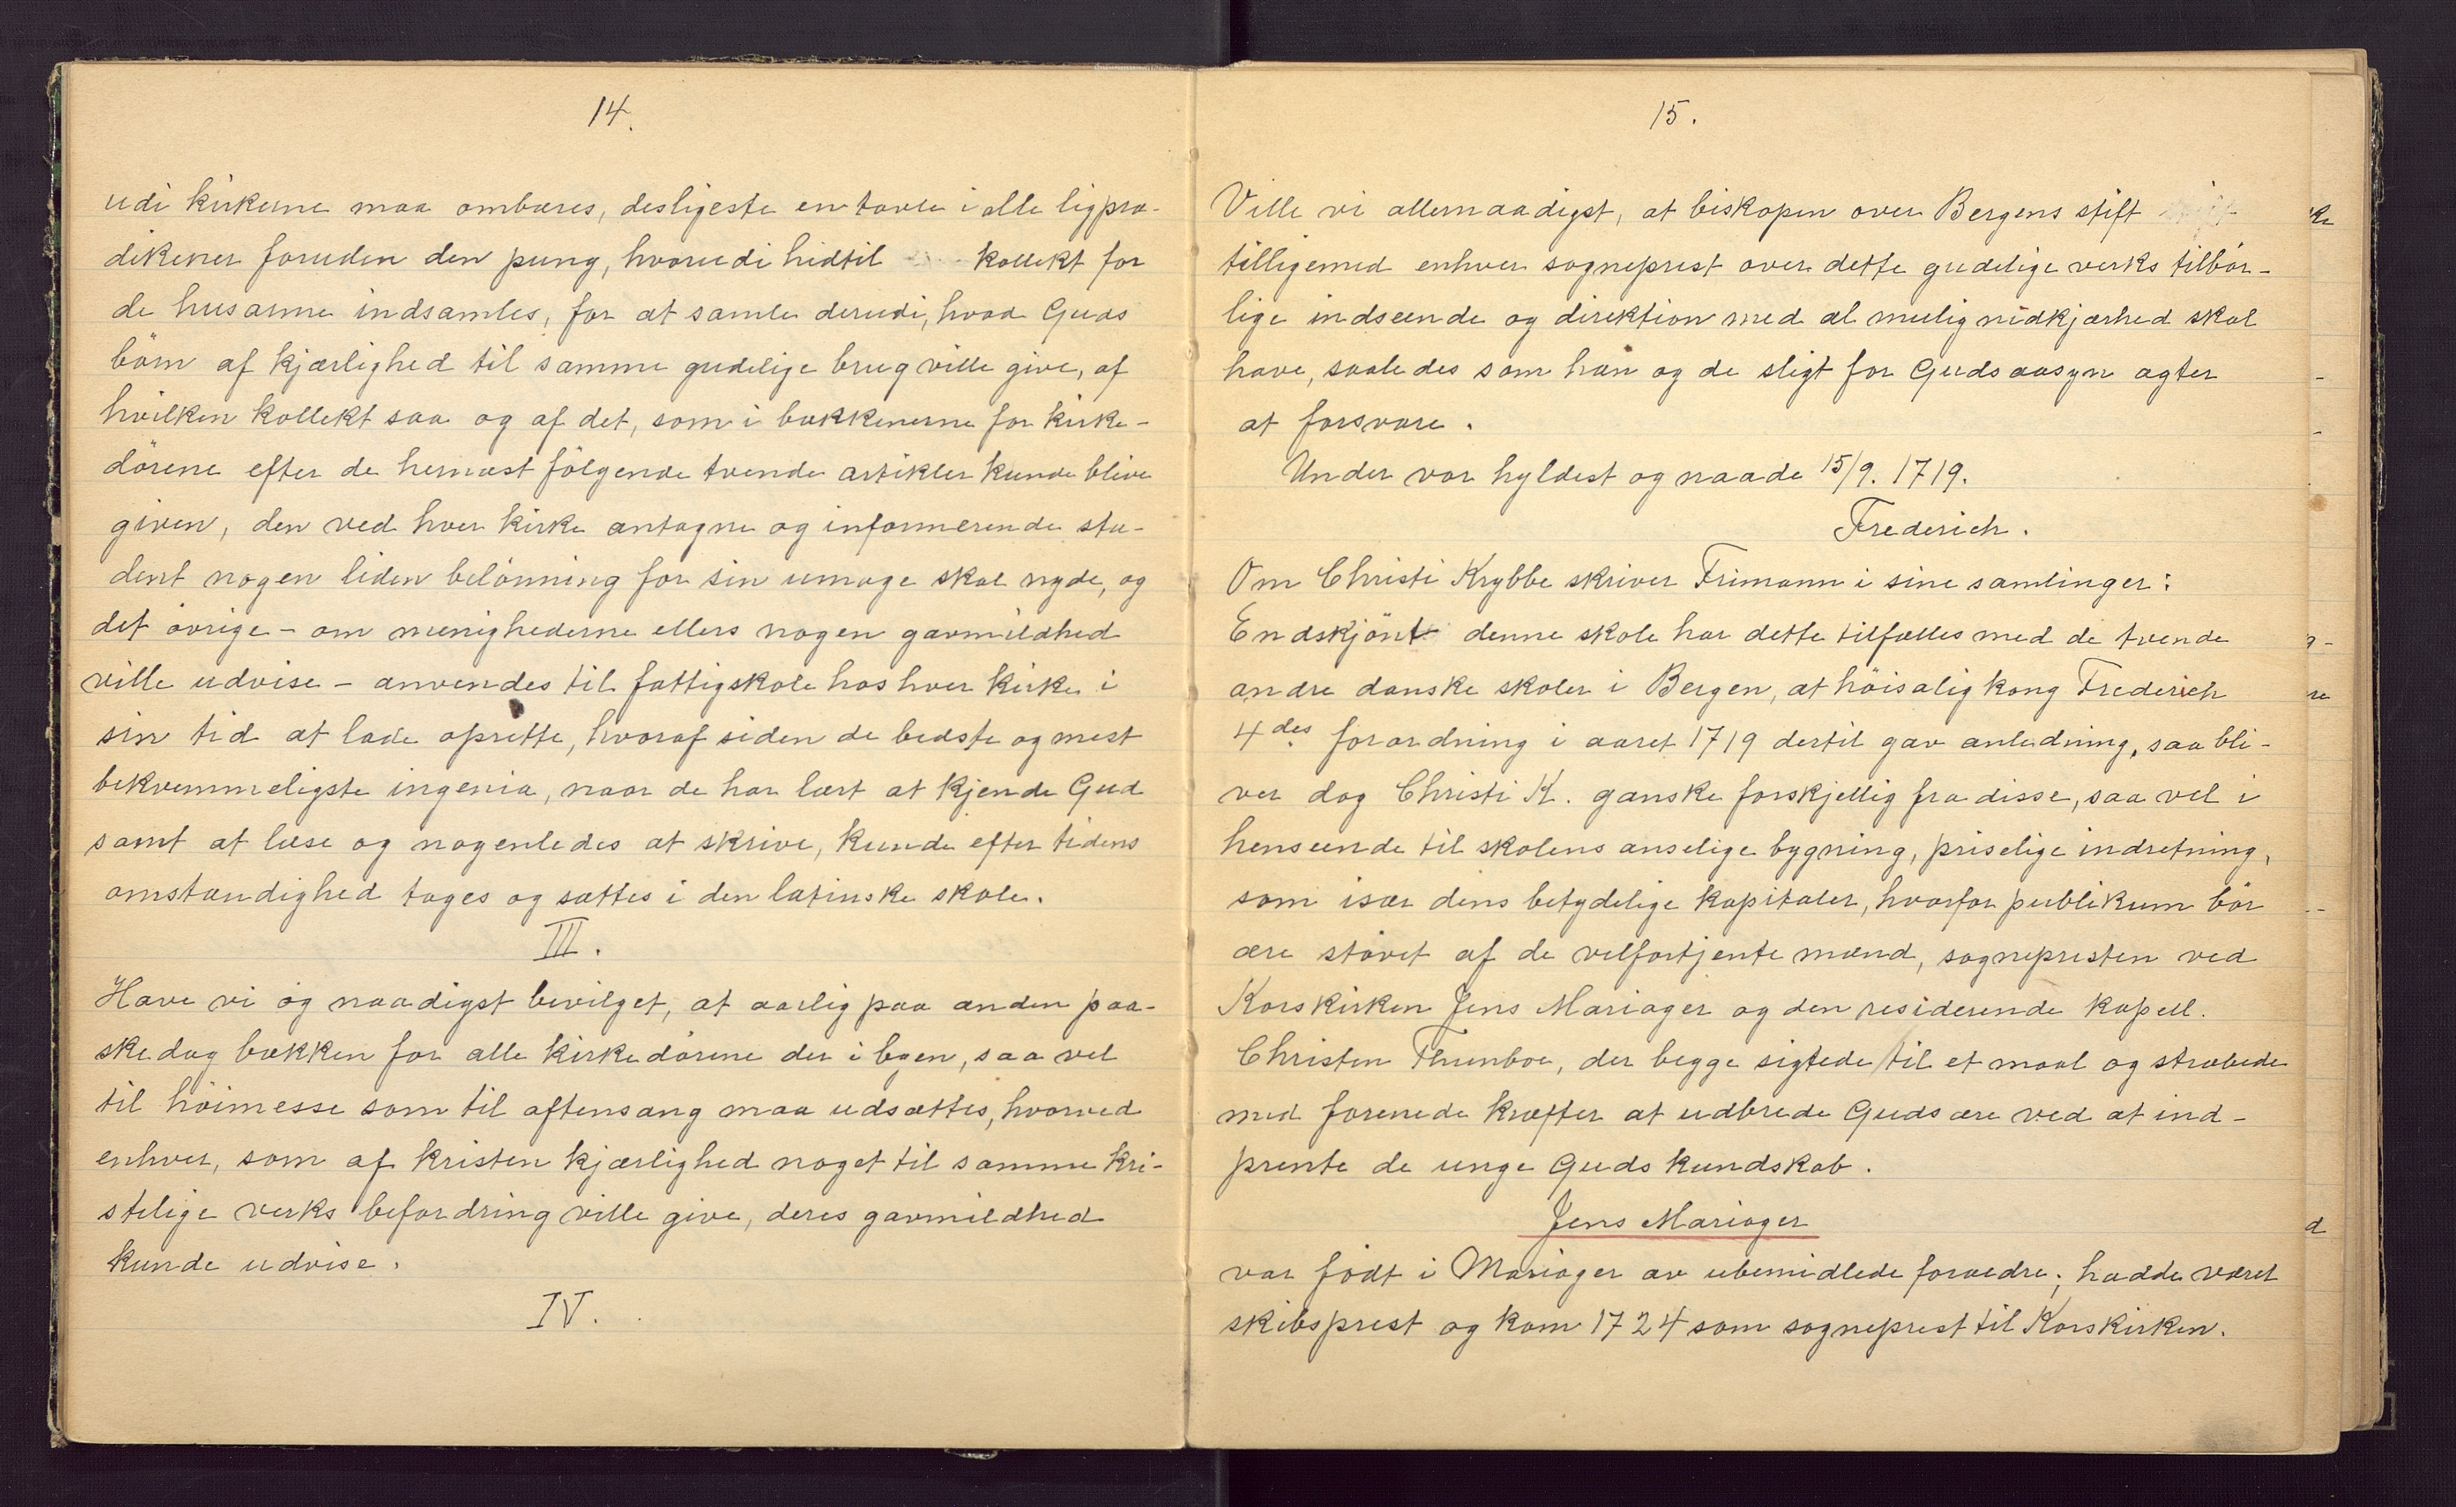 14.
udi kirkerne maa ombæres, desligeste en tavle i alle ligpræ-
dikener foruden den pung, hvorudi hidtil kollekt for
de husarme indsamles, for at samle derudi, hvad Guds
börn af kjærlighed til samme gudelige brug ville give, af
hvilken kollekt saa og af det, som i bækkenerne for kirke-
dörene efter de hernæst fölgende tvende artikler kunde blive
given, den ved hver kirke antagne og informerende stu-
dent nogen liden belönning for sin umage skal nyde, og
det övrige - om menighederne ellers nogen gavmildhed
ville udvise - anvendes til fattigskole hos hver kirke i
sin tid at lade oprette, hvoraf siden de bedste og mest
bekvemmeligste ingenia, naar de har lært at kjende Gud
samt at læse og nogenledes at skrive, kunde efter tidens
omstændighed tages og sættes i den latinske skole.
III.
Have vi og naadigst bevilget, at aarlig paa anden paa-
skedag bækken for alle kirkedörene der i byen, saa vel
til höimesse som til aftensang maa udsættes, hvorved
enhver, som af kristen kjærlighed noget til samme kri-
stelige verks befordring ville give, deres gavmildhed
kunde udvise.
IV.
15.
Ville vi allernaadigst, at biskopen over Bergens stift
tilligemed enhver sogneprest over dette gudelige verks tilbör-
lige indseende og direktion med al mulig nidkjærhed skal
have, saaledes som han og de sligt for Guds aasyn agter
at forsvare.
Under vor hyldest og naade 15/9. 1719.
Frederich.
Om Christi Krybbe skriver Frimann i sine samlinger:
Endskjönt denne skole har dette tilfælles med de tvende
andre danske skoler i Bergen, at höisalig kong Frederich
4des forordning i aaret 1719 dertil gav anledning, saa bli-
ver dog Christi K. ganske forskjellig fra disse, saa vel i
henseende til skolens anselige bygning, priselige indretning,
som især dens betydelige kapitaler, hvorfor publikum bör
ære stövet af de velfortjente mænd, sognepresten ved
Korskirken Jens Mariager og den residerende kapell.
Christen Thunboe, der begge sigtede til et maal og stræbede
med forenede kræfter at udbrede Guds ære ved at ind-
prente de unge Guds kundskab.
Jens Mariager
var födt i Mariager av ubemidlede forældre; hadde været
skibsprest og kom 1724 som sogneprest til Korskirken.